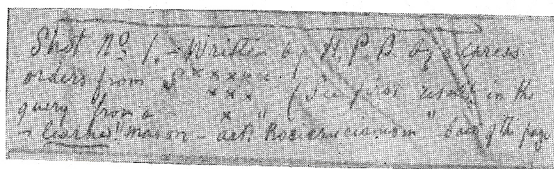 Shot No 1. – Written by H. P. B. by express
orders from S x x x x x x
x x x (See first result in the
query from a x "
learned" Mason – art: "Rosicrucianism" back of the page